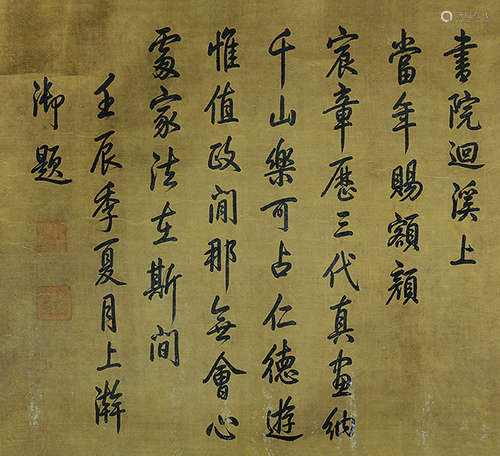 書院迴溪上
當年賜額顏
宸章歷三代真畫納
千山樂可占仁德遊
惟值政閒那無會心
處家法在斯間
壬辰季夏月上澣
御題